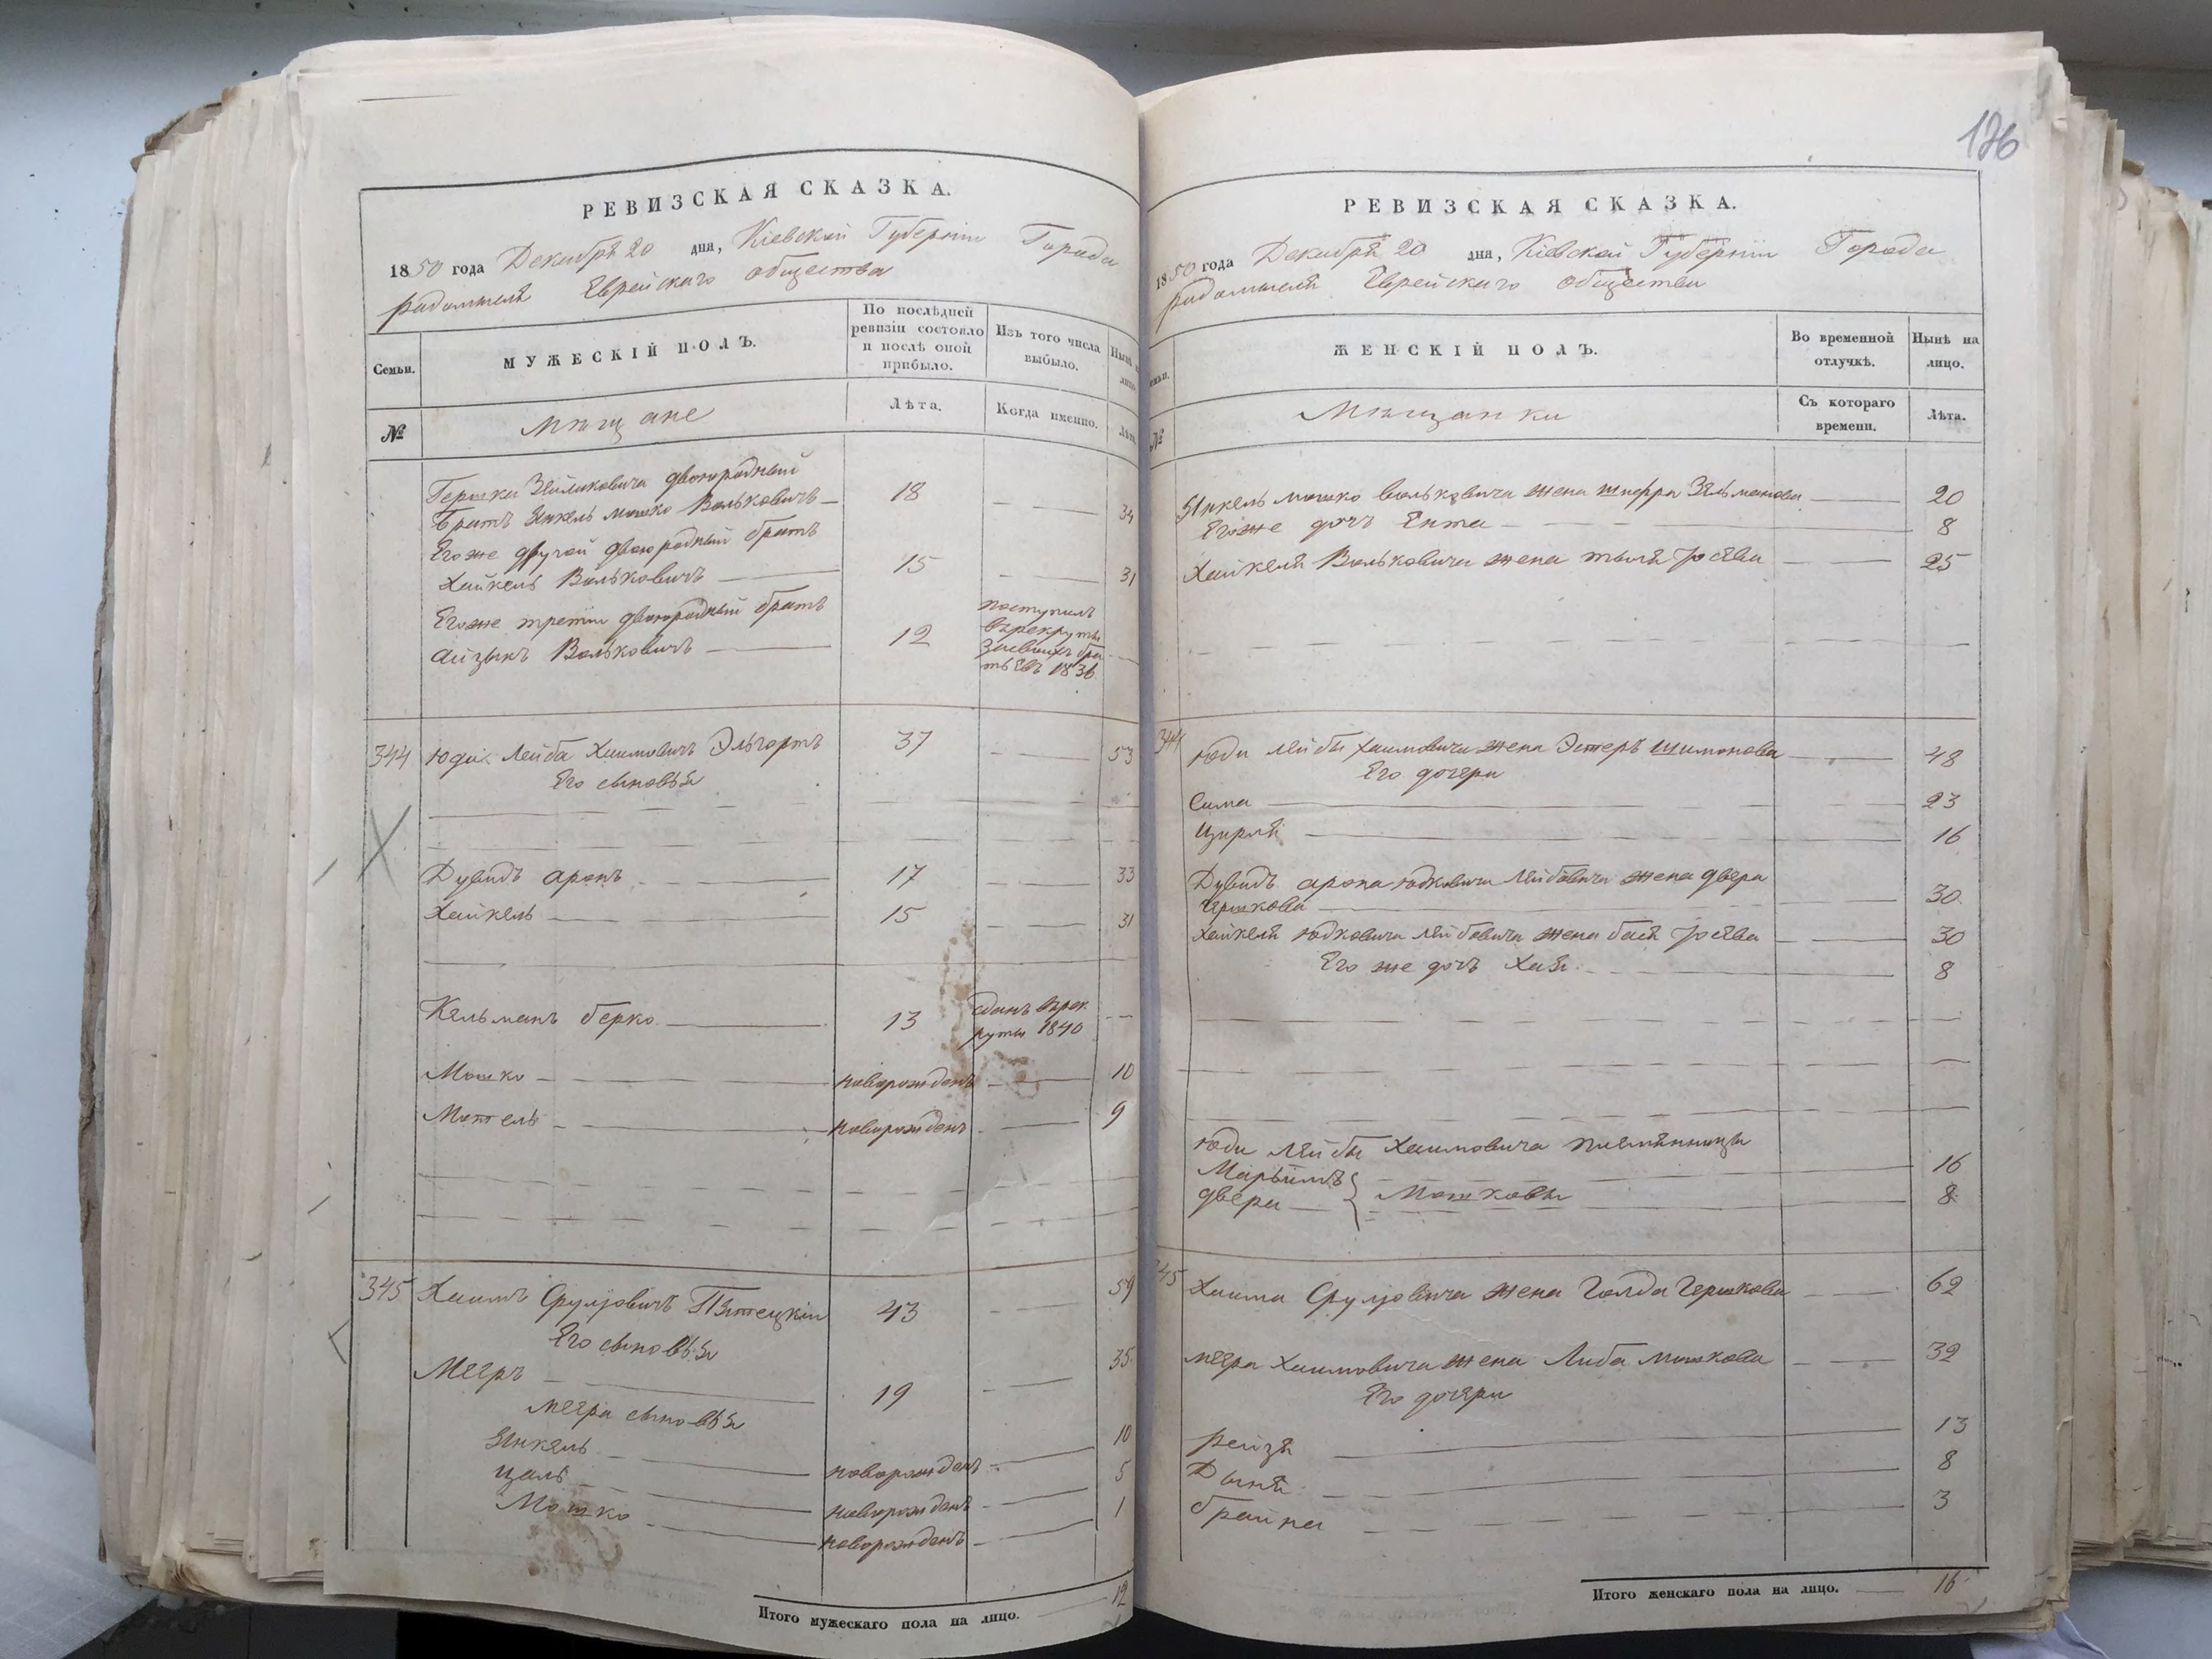 РЕВИЗСКАЯ СКАЗКА.
1850 года Декабря 20 дня, Кіевской Губерніи Города
Радомысля Еврейскаго общества
Семьи. МУЖЕСКІЙ ПОЛЪ. По послѣдней ревизіи состояло и послѣ оной прибыло. Изъ того числа выбыло. Нынѣ
№ Мѣщане Лѣта. Когда именно. Лѣта
Гершка Зейликовича двоюродный
братъ Янкель Мошко Вольковичъ — 18 — 34
Его же другой двоюродный братъ
Хайкель Вольковичъ — 15 — 31
Его же третій двоюродный братъ
Айзыкъ Вольковичъ — 12 поступилъ
въ рекруты
1836
344 Юдк Лейба Хаимовичъ Эльгортъ 37 — 53
Его сыновья
Дувидъ Аронъ — 17 — 33
Хайкель — 15 — 31
Кельманъ Берко — 13 сданъ в рек
руты 1840
Мошко — новорожденъ — 10
Мотель — новорожденъ — 9
345 Хаимъ Сруловичъ 43 — 59
Его сыновья
Мееръ — 19 — 35
Меера сыновья
Янкель — новорожденъ — 10
Цаль — новорожденъ — 5
Мошко — новорожденъ — 1
Итого мужескаго пола на лицо. — 12
176
РЕВИЗСКАЯ СКАЗКА.
1850 года Декабря 20 дня, Кіевской Губерніи Города
Радомысля Еврейскаго общества
ЖЕНСКІЙ ПОЛЪ. Во временной отлучкѣ. Нынѣ на лицо.
№ Мѣщанки Съ котораго времени. Лѣта.
Янкель Мошко Вольковича жена — 20
Его же дочь Ента — 8
Хайкеля Вольковича жена — 25
344 Юди Лейбы Хаимовича жена Эстеръ Шимонова — 48
Его дочери
Сима — 23
Цирля — 16
Дувидъ Арона Юдковича Лейбовича жена Двера
Гершкова — 30
Хайкеля Юдковича Лейбовича жена Бася — 30
Его же дочь Хая — 8
Юди Лейбы Хаимовича племянницы
Марьимъ — 16
Двера — } Мошковы — 8
345 Хаима Сруловича жена Голда Гершкова — 62
Меера Хаимовича жена Либа Мошкова — 32
Его дочери
Рейзя — 13
Дыня — 8
Брайна — 3
Итого женскаго пола на лицо. — 16